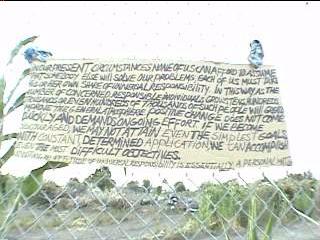 IN OUR PRESENT CIRCUMSTANCES NONE OF US CAN AFFORD TO ASSUME
THAT SOMEBODY ELSE WILL SOLVE OUR PROBLEMS; EACH OF US MUST TAKE
HIS OR HER OWN SHARE OF UNIVERSAL RESPONSIBILITY. IN THIS WAY AS THE
OF CONCERNED, RESPONSIBLE INDIVIDUALS GROW, TENS, HUNDREDS,
THOUSANDS OR EVEN HUNDREDS OF THOUSANDS OF SUCH PEOPLE WILL GREATLY
THE GENERAL ATMOSPHERE. POSITIVE CHANGE DOES NOT COME
QUICKLY AND DEMANDS ONGOING EFFORT. IF WE BECOME
DISCOURAGED WE MAY NOT ATTAIN EVEN THE SIMPLEST GOALS.
WITH CONSTANT, DETERMINED APPLICATION, WE CAN ACCOMPLISH
THE MOST DIFFICULT OBJECTIVES.
OF UNIVERSAL RESPONSIBILITY IS ESSENTIALLY A PERSONAL